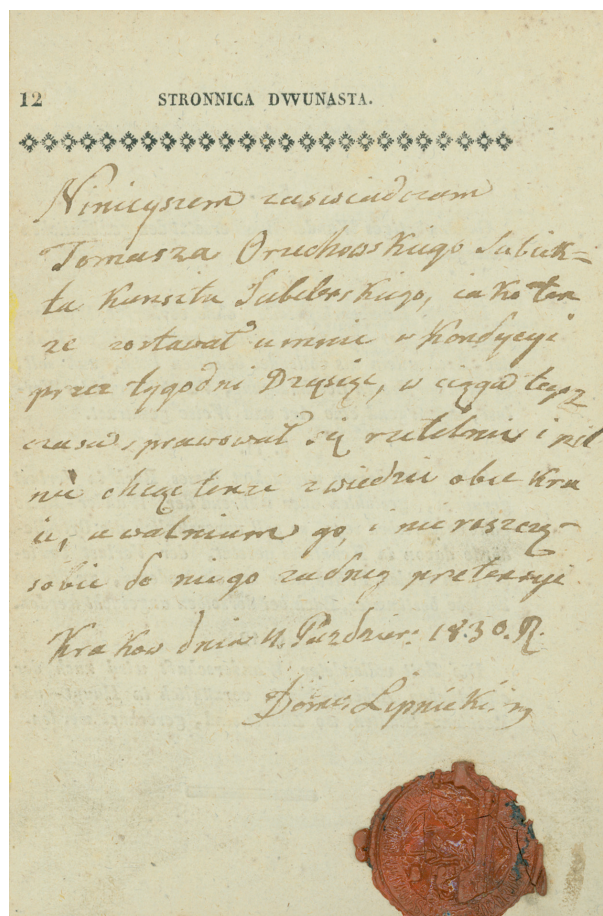 12 STRONNICA DWUNASTA.
Ninieyszem zaswiadczam
Tomasza Orzechowskiego Subiek=
ta Kunsztu Jubilerskiego, iako ten
ze zostawał u mnie w Kondycyi
przez tygodni Dziesięć, w ciągu tegoż
czasu, sprawował się rzetelnie i pil
nie chcąc teraz zwiedzic obce Kra
ie, uwalniam go, i nie roszczę
sobie do niego zadney pretensyi
Krakow dnia 4. Pazdzier: 1830. R.
Lipnicki.